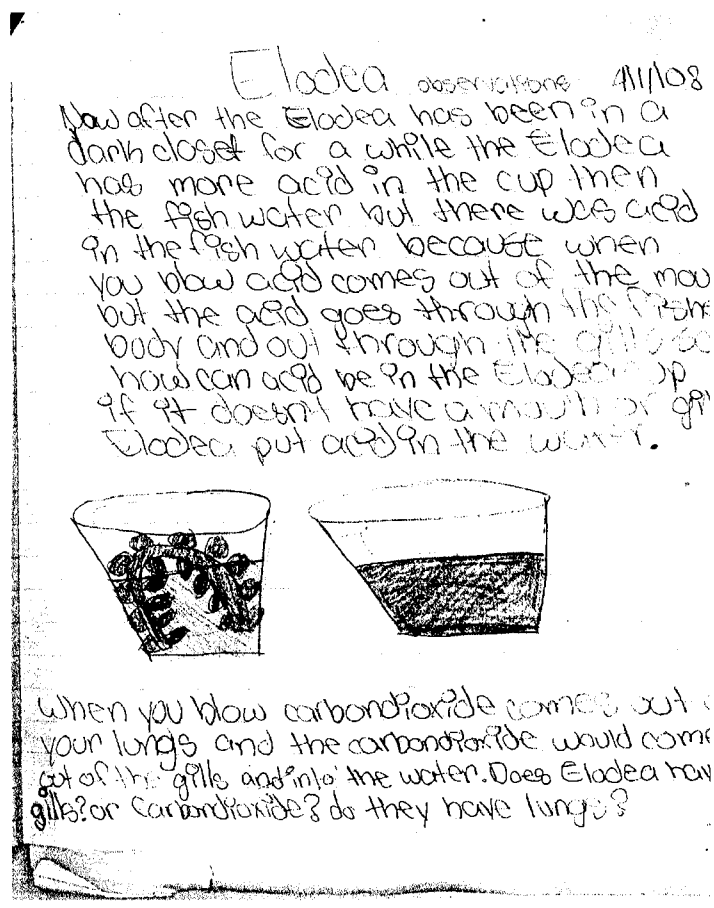 Elodea observations 4/1/08
Now after the Elodea has been in a
dark closet for a while the Elodea
has more acid in the cup then
the fish water but there was acid
in the fish water because when
you blow acid comes out of the mou
but the acid goes through the fishe
body and out through the gills so
how can acid be in the Elodea up
if it doesn't have a mouth or gil
Elodea put acid in the water.
When you blow carbondioxide comes out
your lungs and the carbondioxide would come
out of the gills and into the water. Does Elodea hav
gills? or Carbondioxide? do they have lungs?